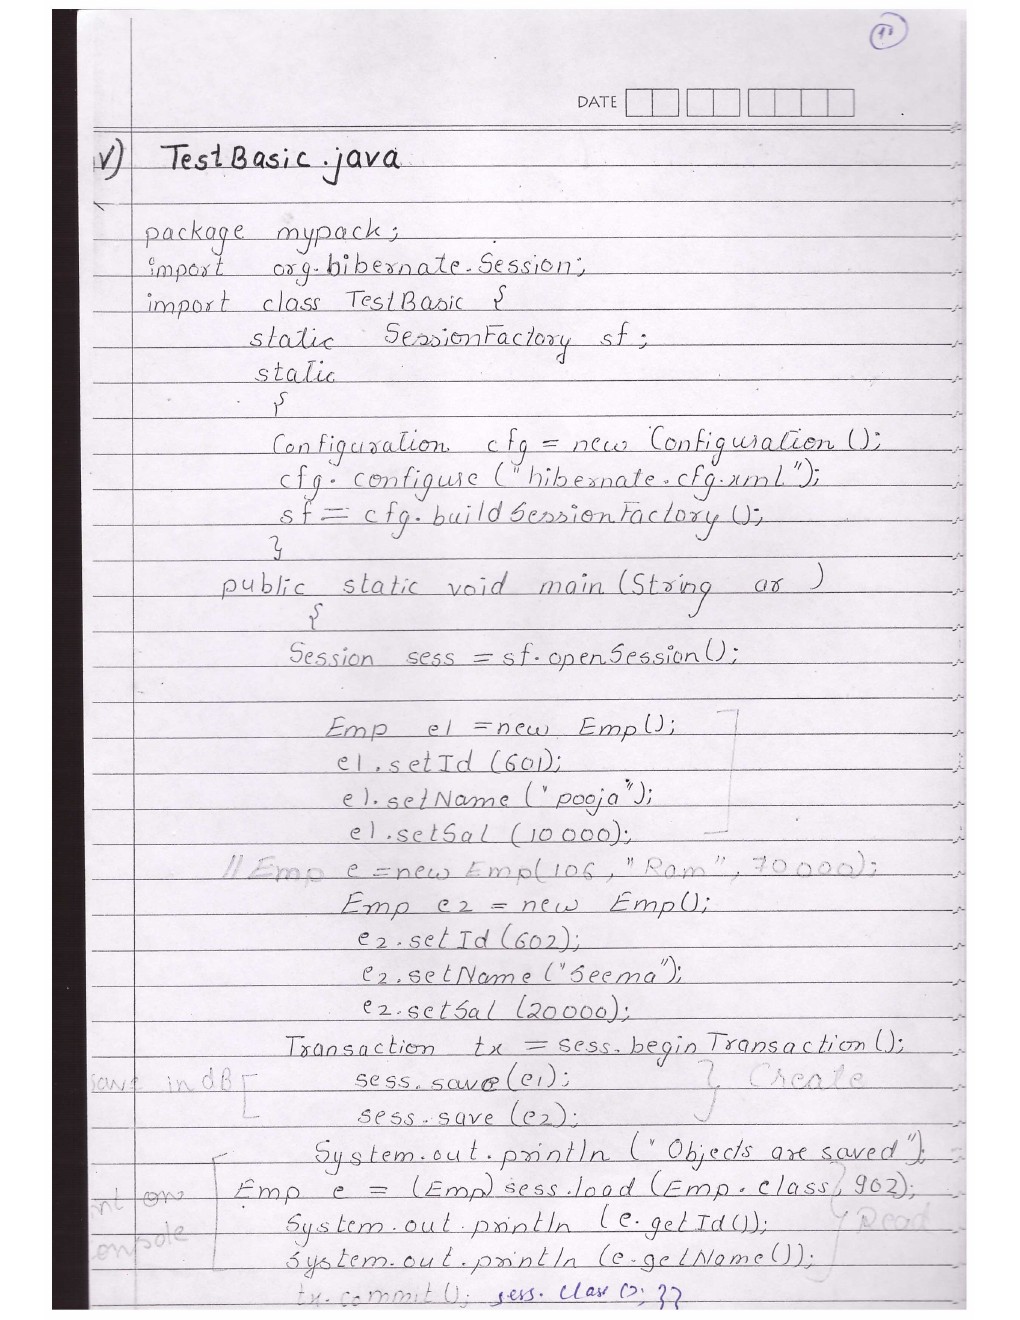 DATE
v) TestBasic.java
package mypack;
import org.hibernate.Session;
import class TestBasic {
static SessionFactory sf;
static
{
Configuration cfg = new Configuration ();
cfg. configure ("hibernate.cfg.xml");
sf = cfg. build SessionFactory ();
}
public static void main (String ar )
{
Session sess = sf.openSession();
Emp e1 = new Emp();
e1.setId (601);
e1.setName ("pooja");
e1.setSal (10000);
// Emp e = new Emp(106, "Ram", 70000);
Emp e2 = new Emp();
e2.setId (602);
e2.setName ("Seema");
e2.setSal (20000);
Transaction tx = sess.begin Transaction ();
save in dB sess. save (e1); } Create
sess.save (e2);
System.out.println (" Objects are saved");
Emp e = (Emp) sess.load (Emp.class, 902);
nt on System.out.println (e.getId()); Read
onsole System.out.println (e.getName());
tx.commit (); sess. close (); }}